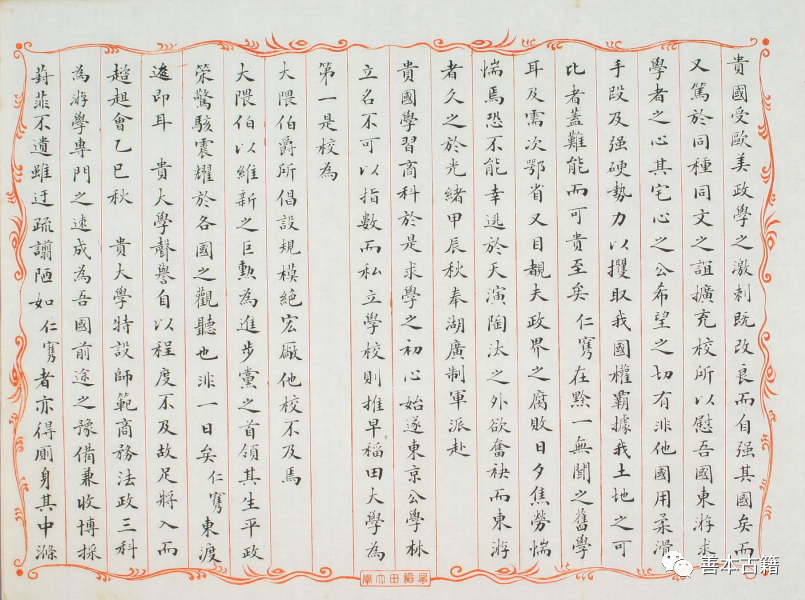 貴國受歐美政學之激刺既改良而自强其國矣而
又篤於同種同文之誼擴充校所以慰吾國東游求
學者之心其宅心之公希望之切有非他國用柔滑
手段及强硬勢力以攫取我國權霸據我土地之可
比者蓋難能而可貴至矣 仁寯在黔一無聞之舊學
耳及需次鄂省又目覩夫政界之腐敗日夕焦勞惴
惴焉恐不能幸逃於天演陶汰之外欲奮袂而東游
者久之於光緒甲辰秋奉湖廣制軍派赴
貴國學習商科於是求學之初心始遂東京公學林
立名不可以指數而私立學校則推早稻田大學為
第一是校為
大隈伯爵所倡設規模絶宏厰他校不及焉
大隈伯以維新之巨勲為進步黨之首領其生平政
策驚駭震耀於各國之觀聽也非一日矣 仁寯東渡
後即耳 貴大學聲譽自以程度不及故足將入而
趑趄會乙巳秋 貴大學特設師範商務法政三科
為游學專門之速成為吾國前途之豫備兼收博採
葑菲不遺雖迂疏譾陋如 仁寯者亦得厠身其中滌
早稻田大學
善本古籍